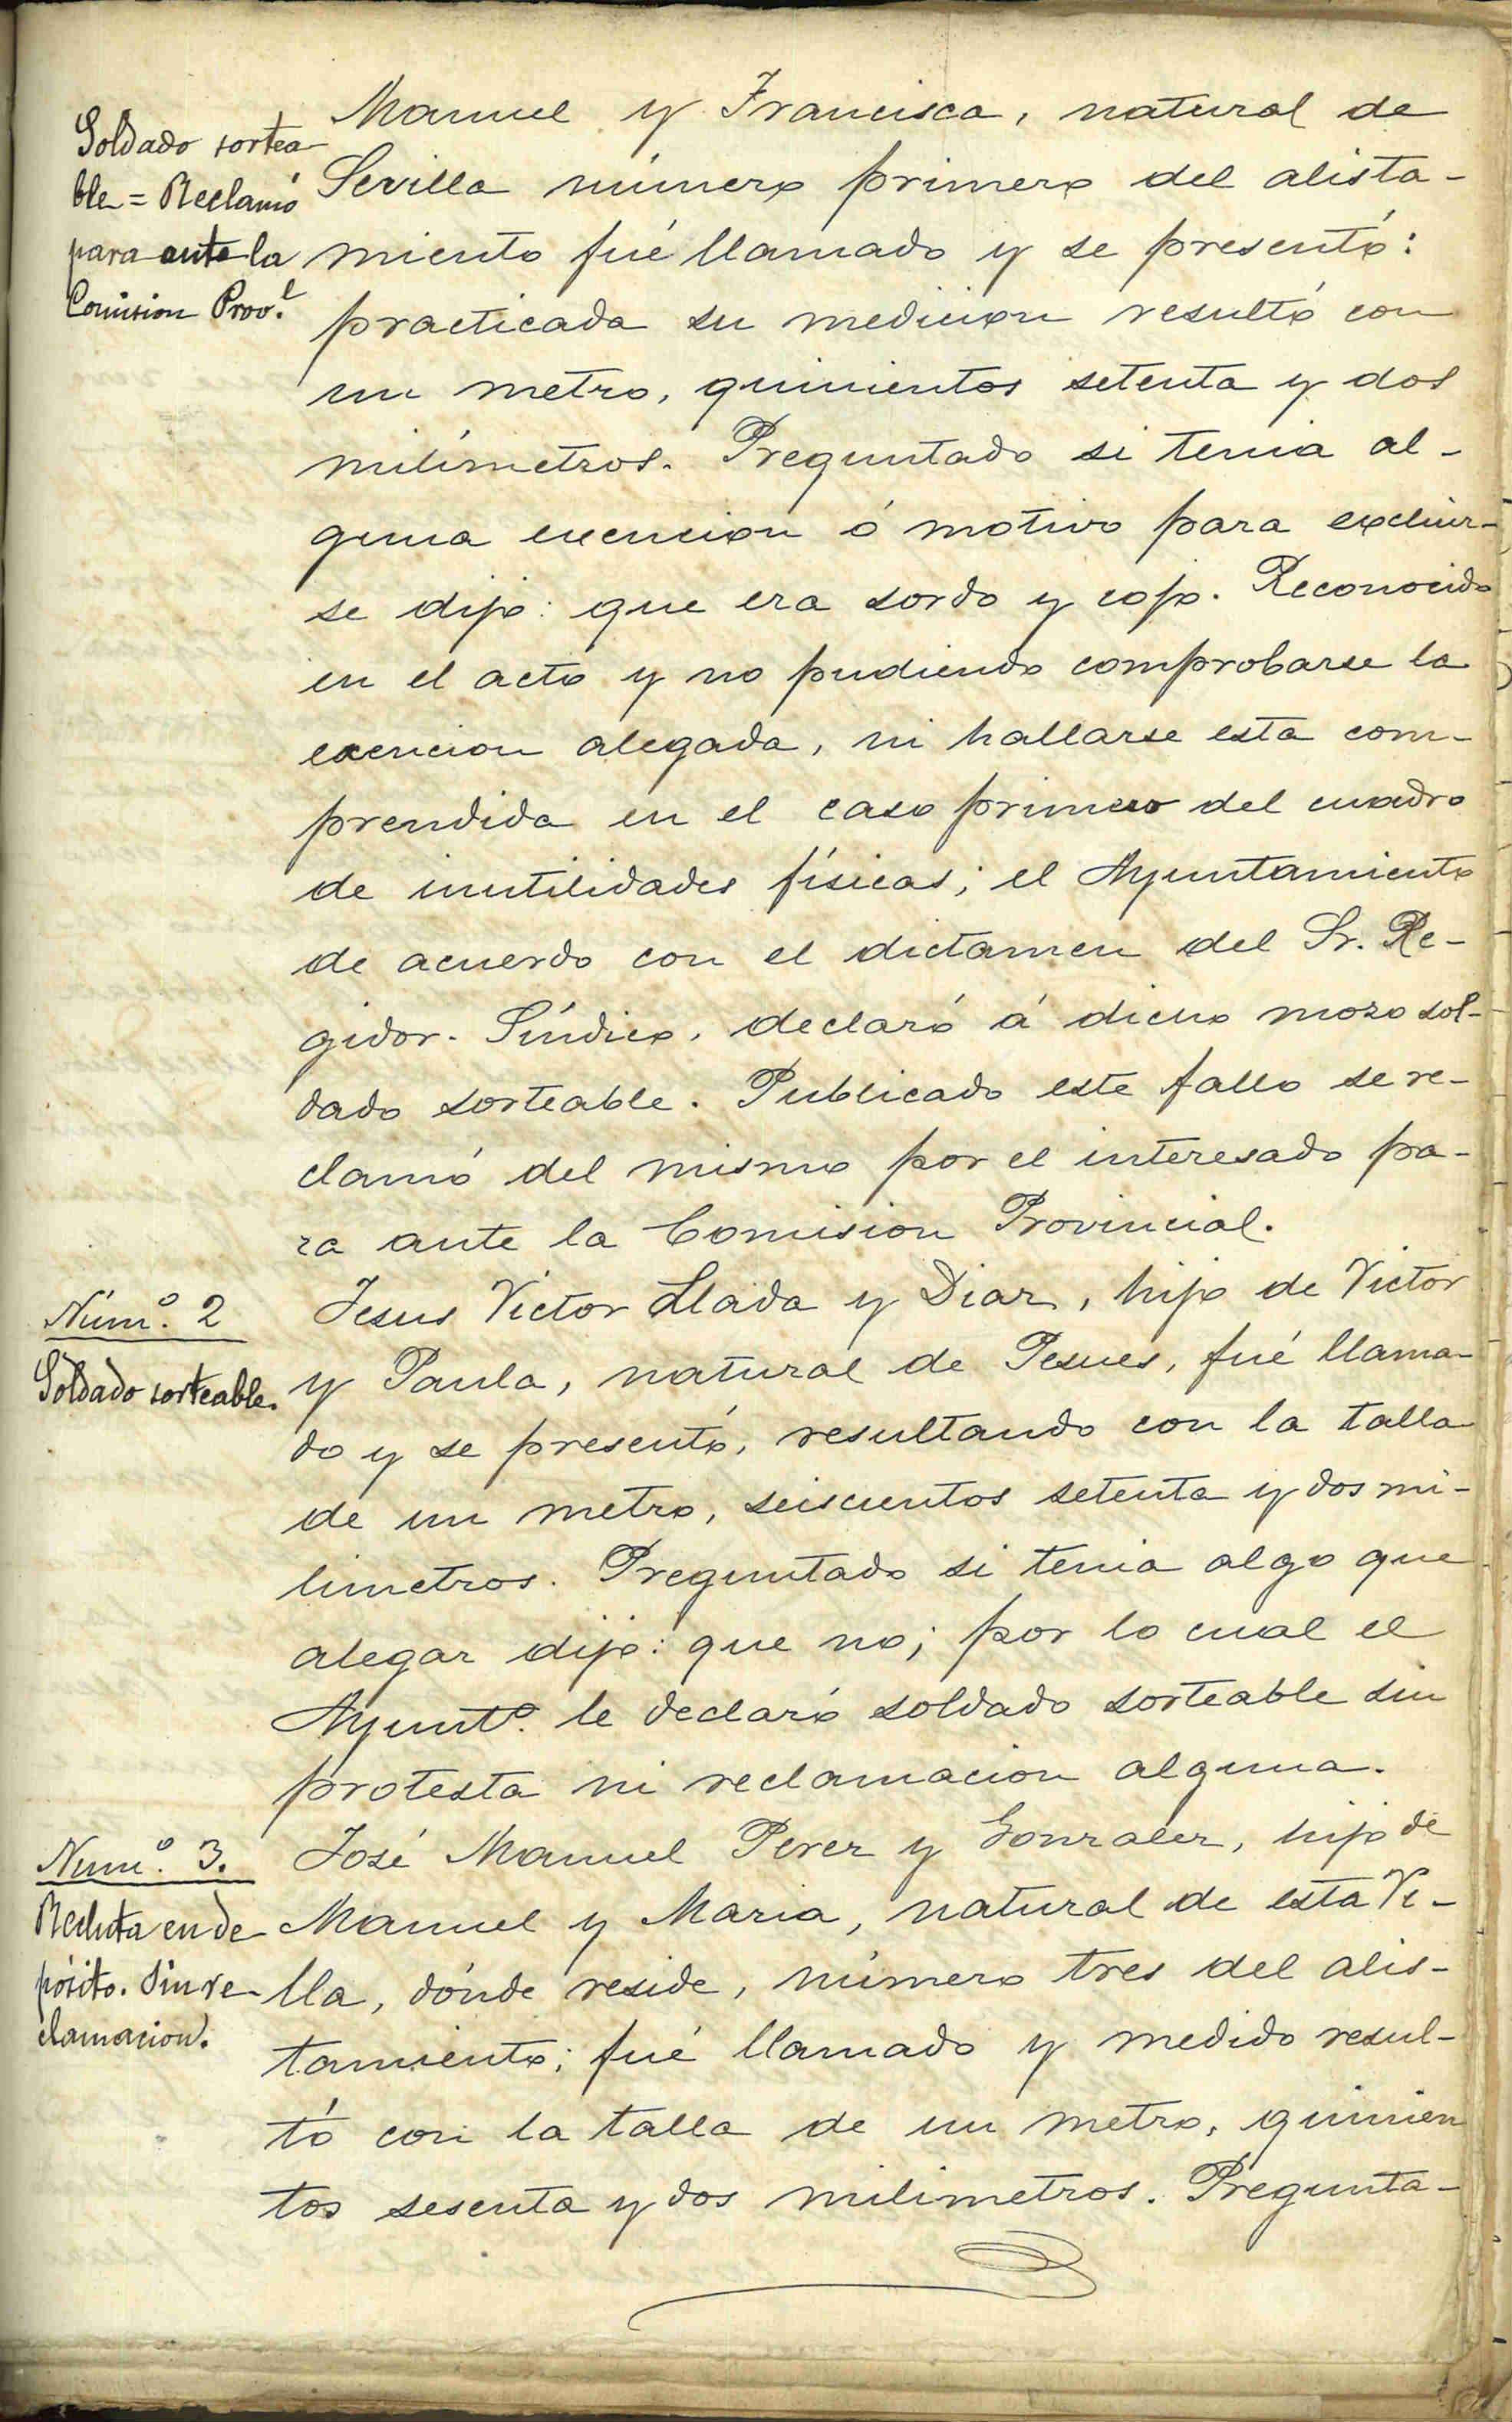 Soldado sortea-
ble = Reclamó
para ante la
Comision Prov.l
Manuel y Francisca, natural de
Sevilla número primero del alista-
miento fué llamado y se presentó:
practicada su medicion resultó con
un metro, quinientos setenta y dos
milímetros. Preguntado si tenia al-
guna exencion ó motivo para excluir-
se dijo: que era sordo y cojo. Reconocido
en el acto y no pudiendo comprobarse la
exencion alegada, ni hallarse esta com-
prendida en el caso primero del cuadro
de inutilidades físicas; el Ayuntamiento
de acuerdo con el dictamen del Sr. Re-
gidor. Síndico, declaró á dicho mozo sol-
dado sorteable. Publicado este fallo se re-
clamó del mismo por el interesado pa-
ra ante la Comision Provincial.
Núm.o 2
Soldado sorteable.
Jesus Victor Llada y Diaz, hijo de Victor
y Paula, natural de Pesues, fué llama-
do y se presentó, resultando con la talla
de un metro, seiscientos setenta y dos mi-
limetros. Preguntado si tenia algo que
alegar dijo: que no; por lo cual el
Ayunt.o le declaró soldado sorteable sin
protesta ni reclamacion alguna.
Num.o 3.
Recluta en de-
pósito. Sin re-
clamacion.
José Manuel Perez y Gonzalez, hijo de
Manuel y Maria, natural de esta Vi-
lla, dónde reside, número tres del alis-
tamiento; fué llamado y medido resul-
tó con la talla de un metro, quinien
tos sesenta y dos milimetros. Pregunta-